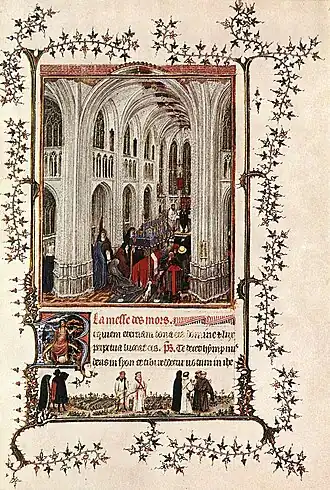 La messe des mors.
equiem eternam dona eis domine & lux
perpetua luceat eis. Ps. Te decet hympnus
deus in syon et tibi reddetur votum in ihe